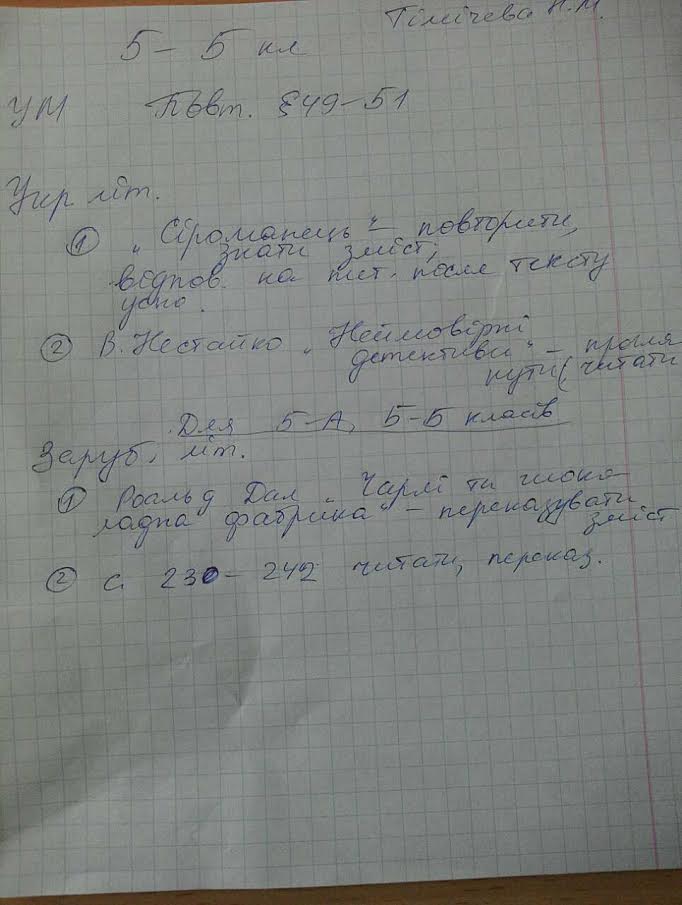 Тімічева Н.М.
5 – Б кл
УМ Повт. §49–51
Укр літ.
① „Сіроманець“ – повторити,
знати зміст;
відпов. на пит. после тексту
усно.
② В. Нестайко „Неймовірні
детективи“ – прогля
нути (читати
Для 5-А, 5-Б класів
Заруб. літ.
① Роальд Дал „Чарлі та шоко-
ладна фабрика“ – переказувати
зміст
② с. 230 – 242 читати, переказ.